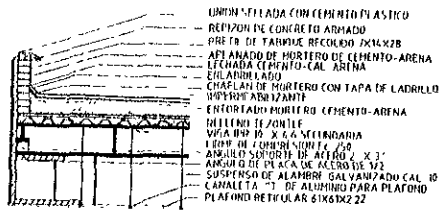 UNION SELLADA CON CEMENTO PLASTICO
REPIZON DE CONCRETO ARMADO
PRETIL DE TABIQUE RECOCIDO 7X14X28
APLANADO DE MORTERO DE CEMENTO-ARENA
LECHADA CEMENTO-CAL ARENA
ENLADRILLADO
CHAFLAN DE MORTERO CON TAPA DE LADRILLO
IMPERMEABILIZANTE
ENTORTADO MORTERO CEMENTO-ARENA
RELLENO TEZONTLE
VIGA IPR 10" X 6.6 SECUNDARIA
FIRME DE COMPRESION 250
ANGULO SOPORTE DE ACERO 2" X 3"
ANGULO DE PLACA DE ACERO DE 1/2
SUSPENSO DE ALAMBRE GALVANIZADO CAL. 10
CANALETA "T" DE ALUMINIO PARA PLAFOND
PLAFOND RETICULAR 61X61X2.22